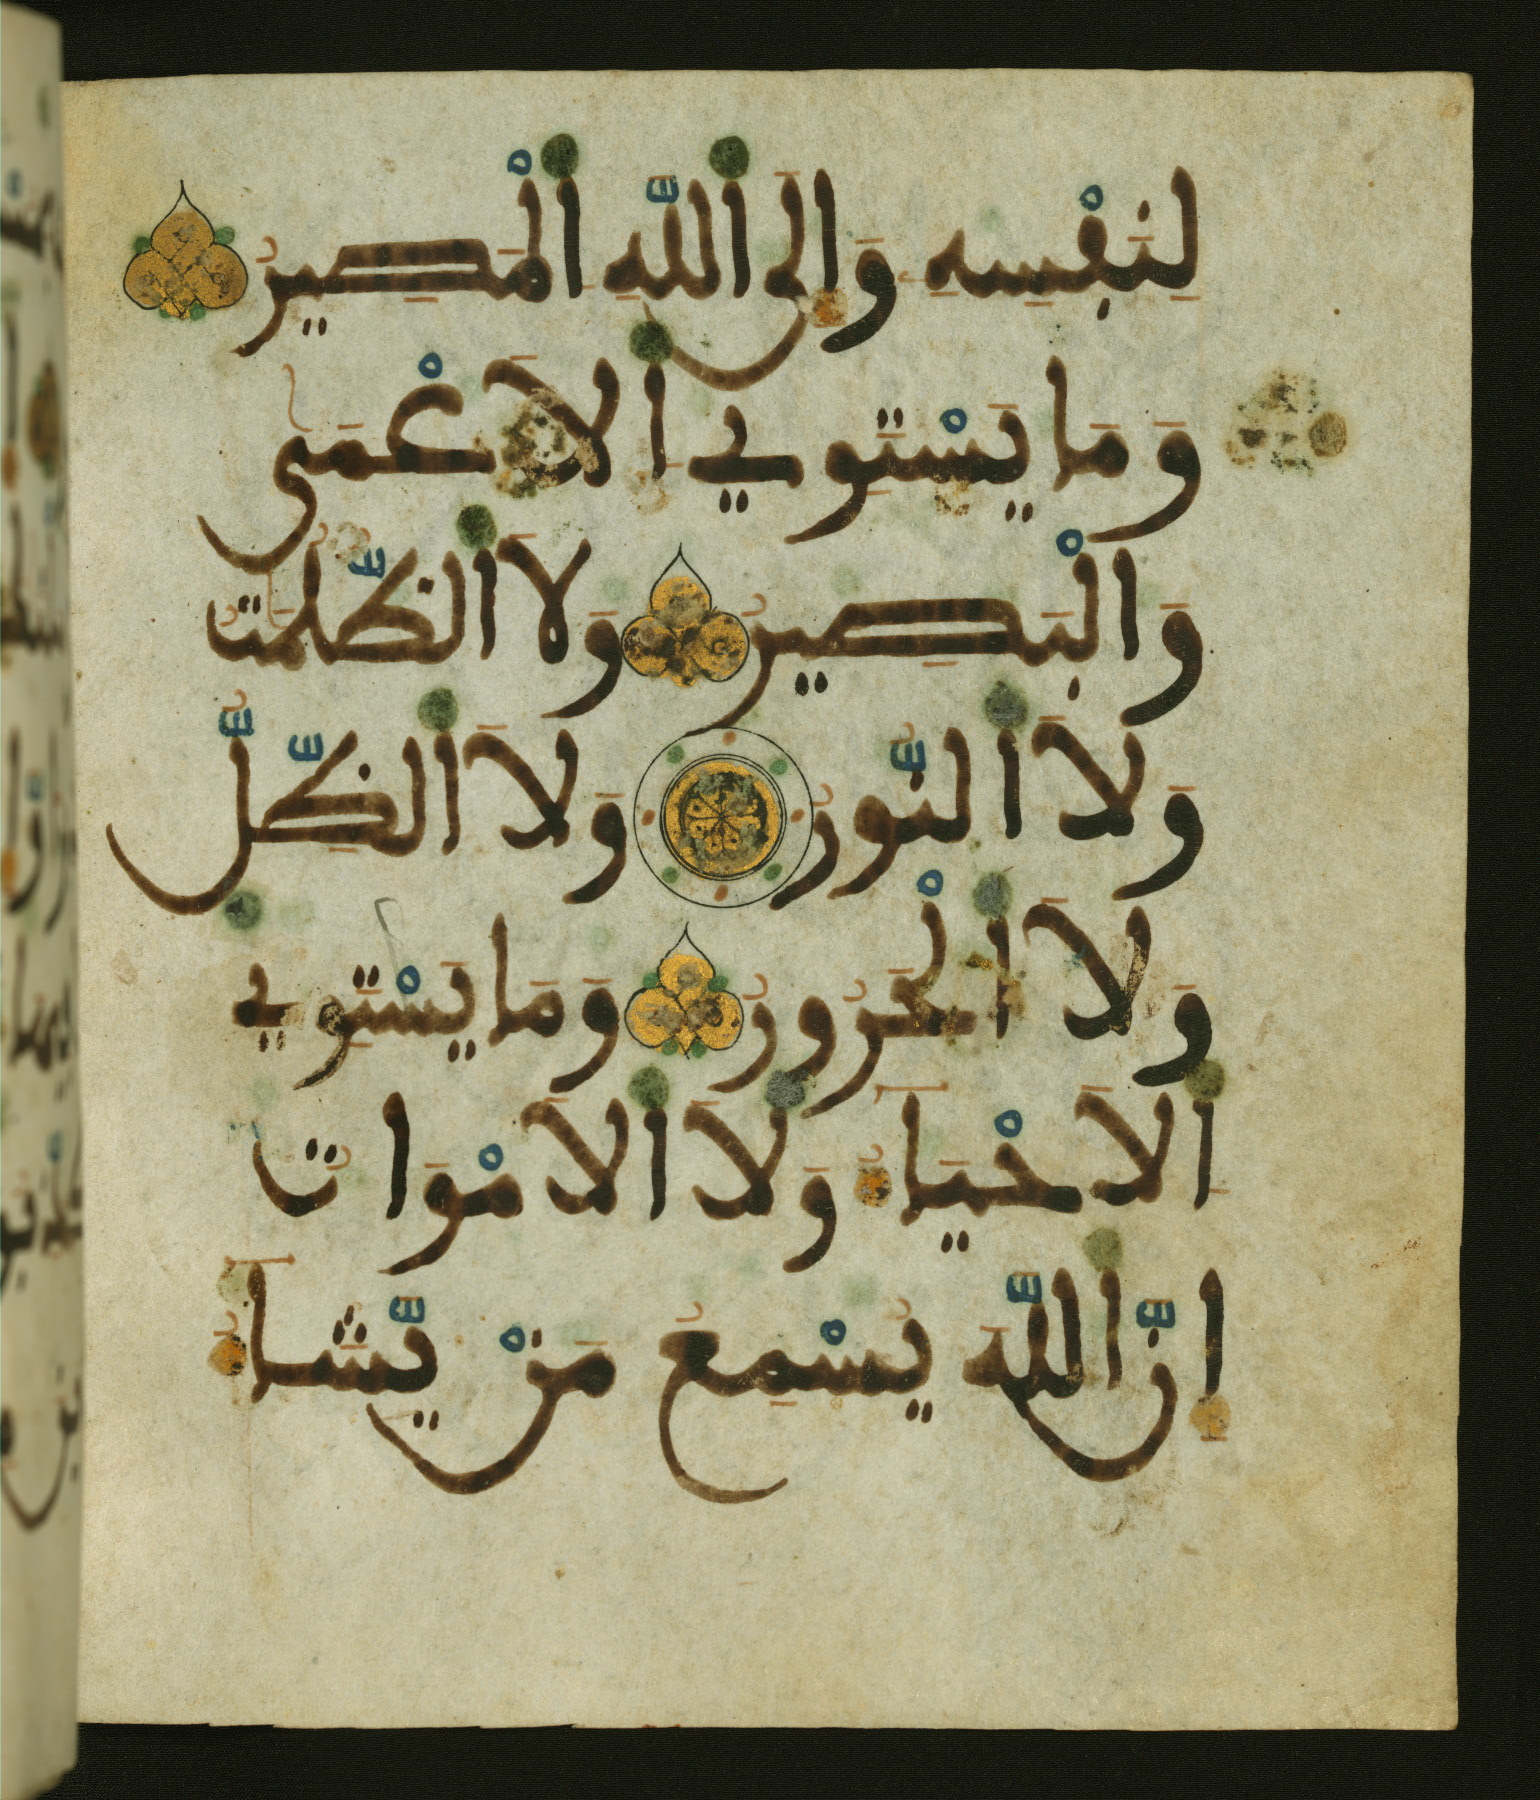 لِنَفْسِهِ وَإِلَى اَللَّهِ اِلْمَصِيرُ
وَمَا يَسْتَوِي اِلَاعْمَىٰ
وَالْبَصِيرُ وَلَا اَلظُّلُمَٰتُ
وَلَا اَلنُّورُ وَلَا اَلظِّلُّ
وَلَا اَلْحَرُورُ وَمَا يَسْتَوِي
اِلَاحْيَآءُ وَلَا اَلَامْوَاتُ
إِنَّ اَللَّهَ يُسْمِعُ مَنْ يَّشَآءُ